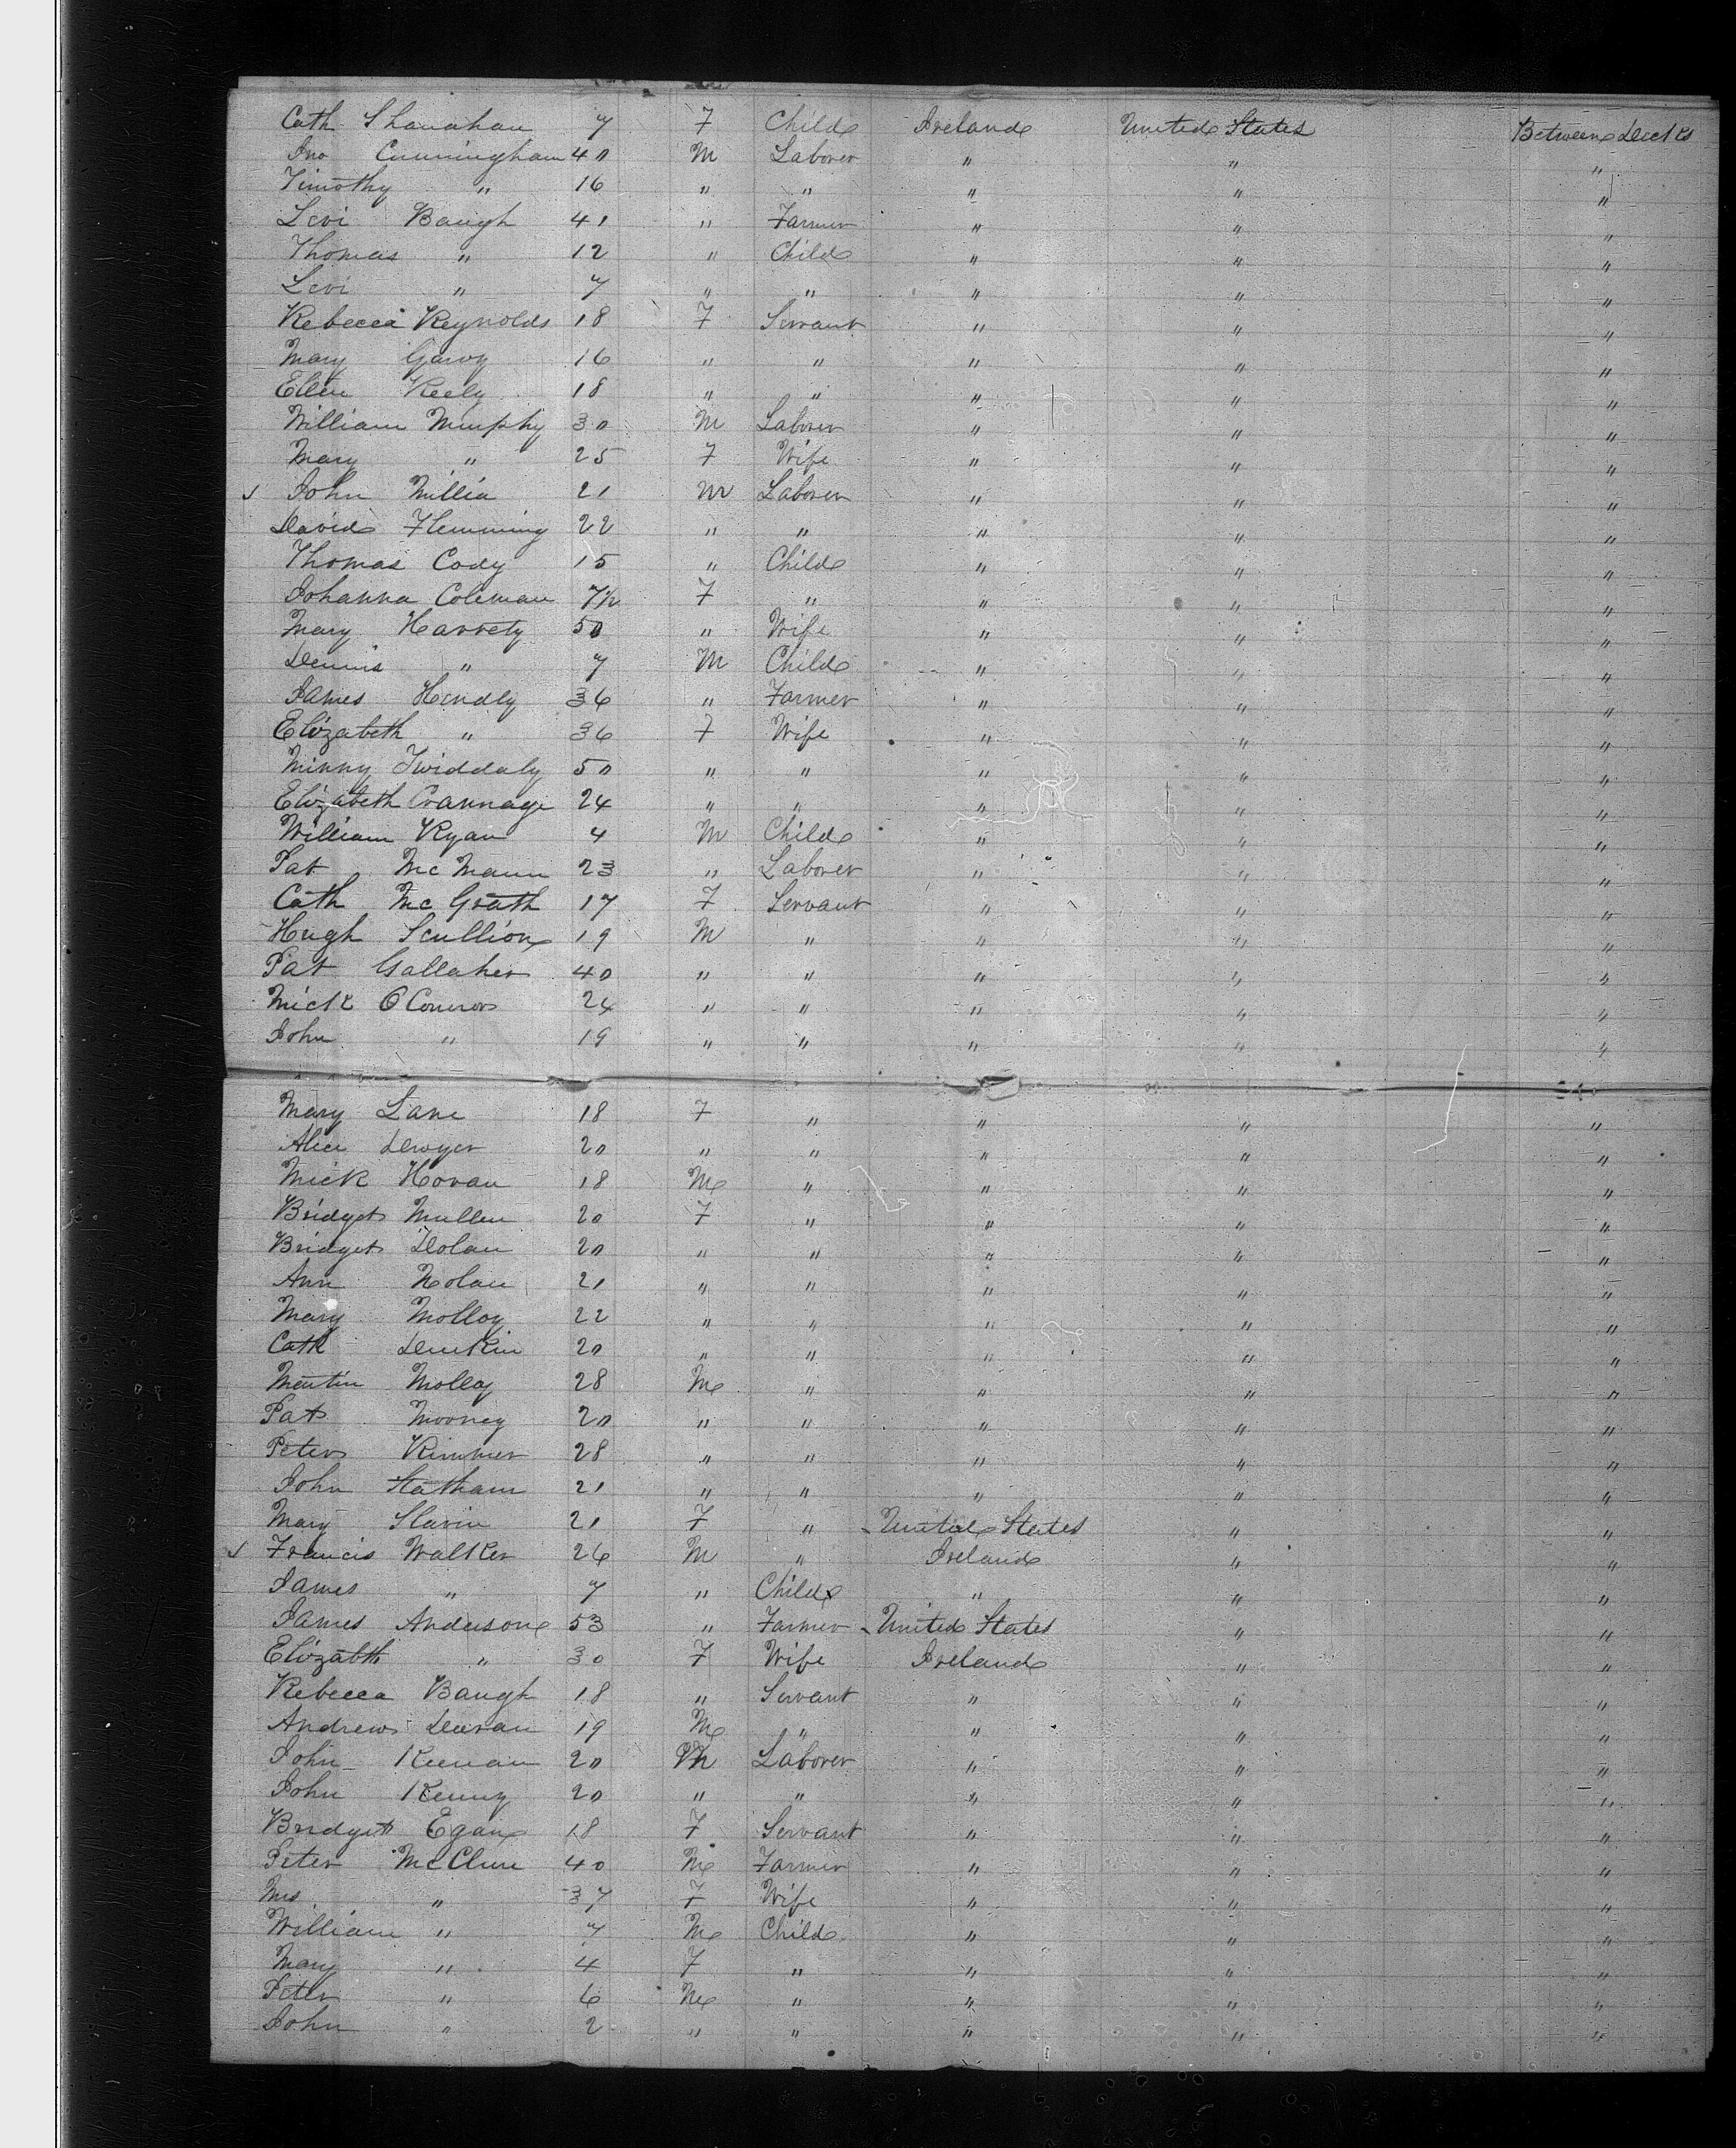 Cath Shanahan 7 F Child Ireland United States Between Decks
Jno Cunningham 40 M Laborer " " "
Timothy " 16 " " " " "
Levi Baugh 41 " Farmer " " "
Thomas " 12 " Child " " "
Levi " 7 " " " " "
Rebecca Reynolds 18 F Servant " " "
Mary Garvy 16 " " " " "
Ellen Keely 18 " " " " "
William Murphy 30 M Laborer " " "
Mary " 25 F Wife " " "
John Millia 21 M Laborer " " "
David Flemming 22 " " " " "
Thomas Cody 15 " Child " " "
Johanna Coleman 7½ F " " " "
Mary Harrety 50 " Wife " " "
Dennis " 7 M Child " " "
James Hendly 36 " Farmer " " "
Elizabeth " 36 F Wife " " "
Minny Twiddaly 50 " " " " "
Elizabeth Crannage 24 " " " " "
William Ryan 4 M Child " " "
Pat McMann 23 " Laborer " " "
Cath McGrath 17 F Servant " " "
Hugh Scullion 19 M " " " "
Pat Gallaher 40 " " " " "
Mick OConnor 24 " " " " "
John " 19 " " " " "
Mary Lane 18 F " " " "
Alice Dwyer 20 " " " " "
Mick Horan 18 M " " " "
Bridget Mullen 20 F " " " "
Bridget Dolan 20 " " " " "
Ann Nolan 21 " " " " "
Mary Molloy 22 " " " " "
Cath 20 " " " " "
Martin Molloy 28 M " " " "
Pat Mooney 20 " " " " "
Peter Rimmer 28 " " " " "
John Statham 21 " " " " "
Mary Slavin 21 F " United States " "
Francis Walker 26 M " Ireland " "
James " 7 " Child " " "
James Anderson 53 " Farmer United States " "
Elizabth " 30 F Wife Ireland " "
Rebecca Baugh 18 " Servant " " "
Andrew 19 M " " " "
John Keenan 20 M Laborer " " "
John Kenny 20 " " " " "
Bridget Egan 18 F Servant " " "
Peter McClure 40 M Farmer " " "
Mrs " 37 F Wife " " "
William " 7 M Child " " "
Mary " 4 F " " " "
Peter " 6 M " " " "
John " 2 " " " " "